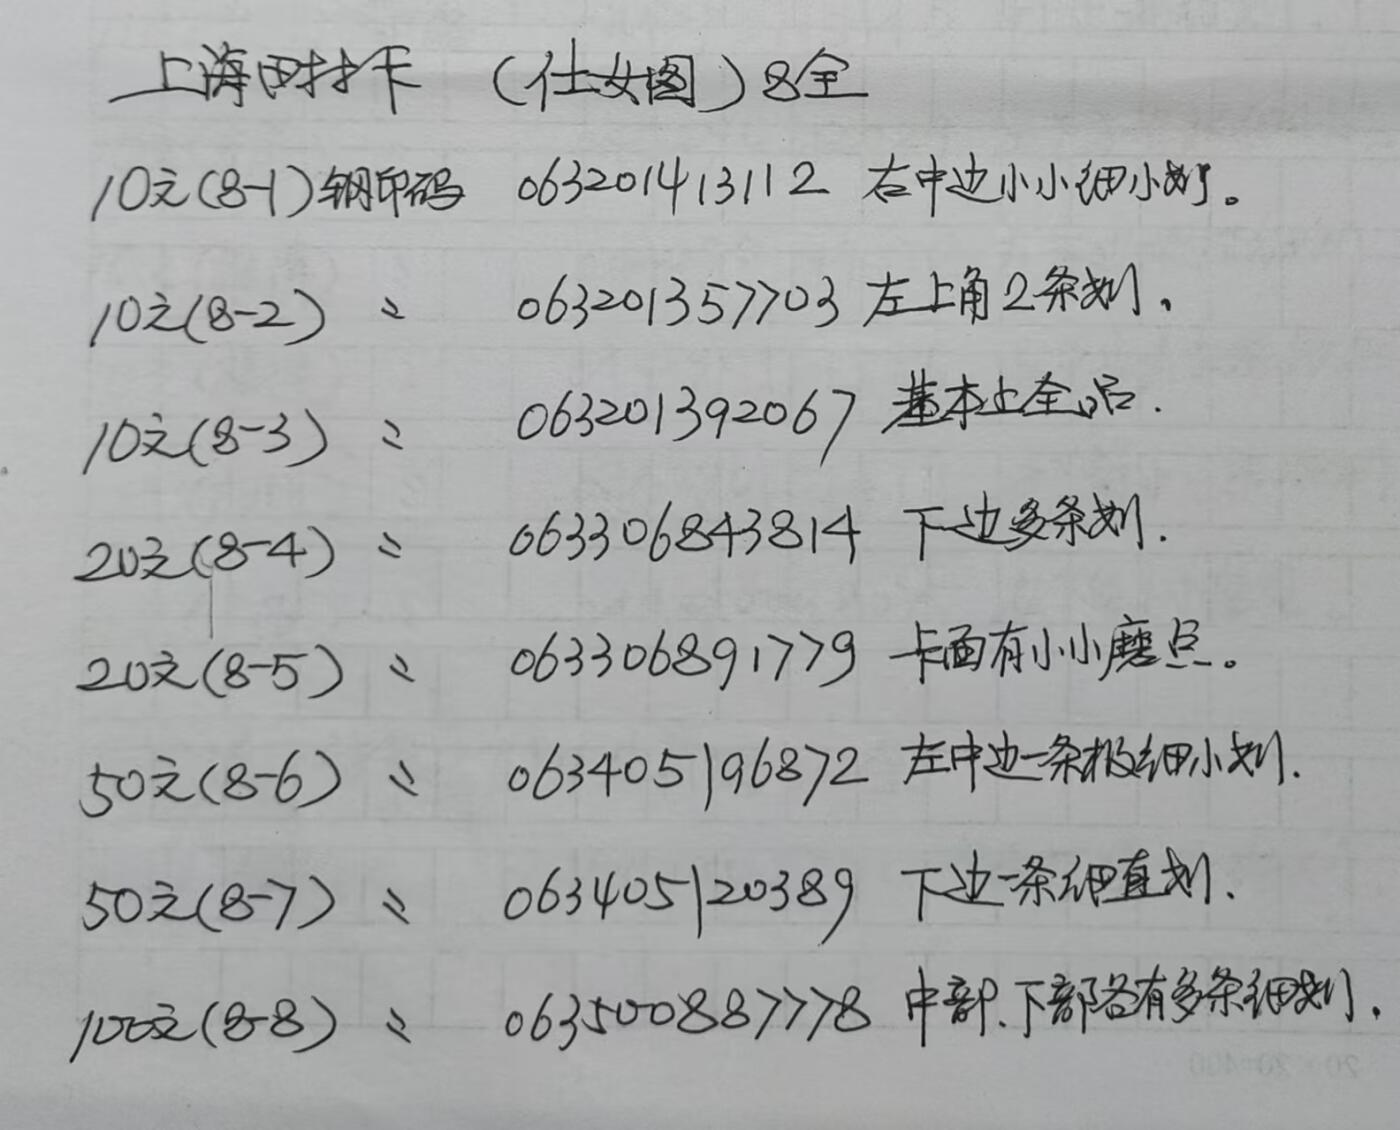 上海田村卡 (仕女图) 8全
10元(8-1)钢印码 063201413112 右中边小小细小划。
10元(8-2) 〃 063201357703 左上角2条划.
10元(8-3) 〃 063201392067 基本上全品.
20元(8-4) 〃 063306843814 下边多条划.
20元(8-5) 〃 063306891779 卡面有小小磨点。
50元(8-6) 〃 063405196872 左中边一条极细小划.
50元(8-7) 〃 063405120389 下边一条细直划.
100元(8-8) 〃 063500887778 中部.下部各有多条细划.
20×20=400